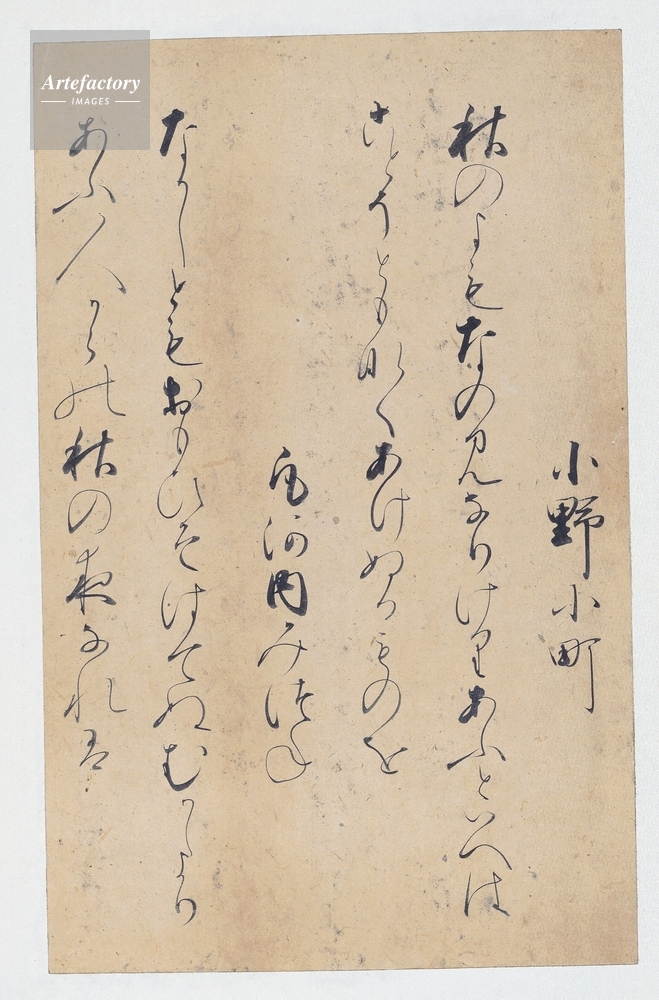 小野小町
秋のよもなのみなりけりあふといへは
ことそともなくあけぬるものを
凡河内みつね
なかしともおもひそはてぬむかしより
あふ人からの秋の夜なれは
Artefactory
IMAGES